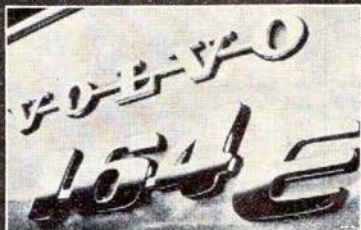 VOLVO
164 E